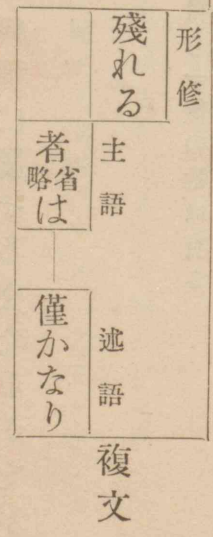 形修
殘れる
主語
者は
省略
述語
僅かなり
複文